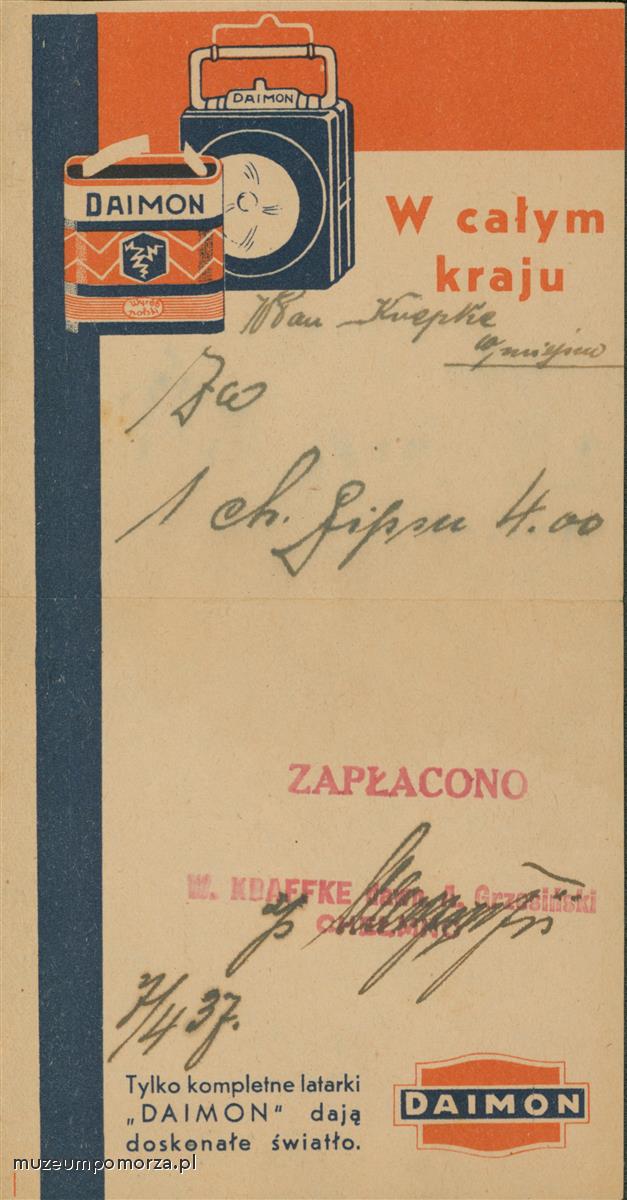 DAIMON
DAIMON
wyrób
polski
W całym
kraju
Pan Knepke
w miejscu
1 ch. Gipsu 4.00
ZAPŁACONO
W. KRAFFKE dawn. A. Grzesiński
CHEŁMNO
7/4 37.
Tylko kompletne latarki
„DAIMON" dają
doskonałe światło.
DAIMON
muzeumpomorza.pl